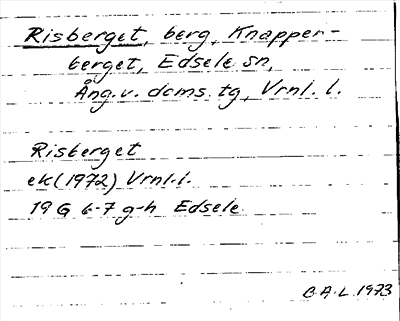 Risberget, berg, Knapper-
berget, Edsele sn,
Ång. v. doms. tg, Vrnl. l.
Risberget
ek (1972) Vrnl.l.
19 G 6-7 g-h Edsele
B.A.L. 1973